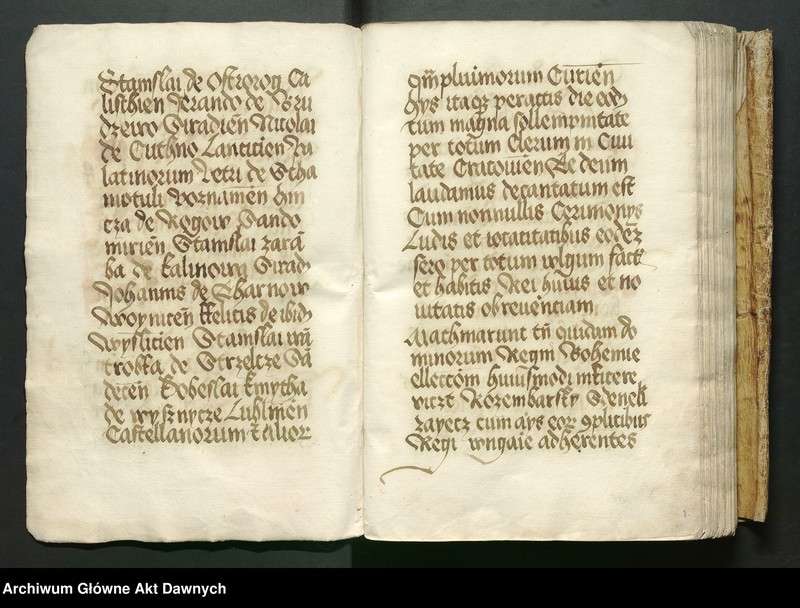 Stanislai de Ostrorog Ca
listhien Jerando de Bru
dzewo Siradien Nicolai
de Cuthno Lancicien Pa
latinorum Petri de Scha
motuli Poznanien hin
cza de Rogow Sando
mirien Stanislai zarā
ba de kalinowa Sirad
Johannis de Tharnow
Woynicen ffelicis de ibid
Wyslicien Stanislai wā
trobka de Strzelcze Sā
decen Dobeslai kmytha
de wysznycze Lublinen
Castellanorum et alior
qm̄pluimorum Curien
hys itaqz peractis die eod
cum magna sollempnitate
per totum Clerum in Civi
tate Cracovien Te deum
laudamus decantatum est
Cum nonnullis Cerimonys
Ludis et iocalitatibus eodez
sero per totum wlgum fact
et habitis Rei huius et no
vitatis ob reverentiam
Machinarunt tn quidam do
minorum Regni Bohemie
ellectom huiusmodi
Rozembarsky Sdenek
zayecz cum aijs eoz 9plicibus
Regi wngarie adherentes
Archiwum Główne Akt Dawnych